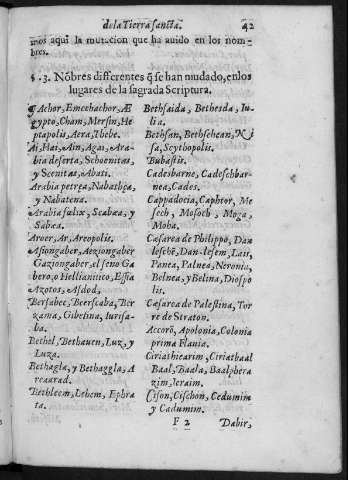 de la Tierra sancta. 42
mos aqui la mutacion que ha auido en los nom-
bres.
§. 3. Nõbres differentes q̃ se han mudado, en los
lugares de la sagrada Scriptura.
Achor, Emechachor, Æ
gypto, Cham, Mersin, He
ptapolis, Aera, Thebe.
Ai, Hai, Ain, Agai, Ara-
bia deserta, Schoenitas,
y Scenitas, Abati.
Arabia petrea, Nabathęa,
y Nabatena.
Arabia fœlix, Scabæa, y
Sabæa.
Aroer, Ar, Areopolis.
Asiongaber, Aeziongaber
Gaziongaber, el seno Ga
bero, o Hellianitico, Essia
Azotos, Asdod.
Bersabee, Beerscaba, Ber
zama, Gibelina, Iurisa-
ba.
Bethel, Bethauen, Luz, y
Luza.
Bethagla, y Bethaggla, A
reaarad.
Bethleem, Lehem, Ephra
ta.
Bethsaida, Bethesda, Iu-
lia.
Bethsan, Bethschean, Ni
sa, Scythopolis.
Bubastis.
Cadesbarne, Cadeschbar-
nea, Cades.
Cappadocia, Caphtor, Me
sech, Mosoch, Moza,
Moha.
Cæsarea de Philippo, Dan
leschẽ, Dan-lesem, Lais,
Panea, Palnea, Neronia,
Belnea, y Belina, Diospo
lis.
Cæsarea de Palestina, Tor
re de Straton.
Accorõ, Apolonia, Colonia
prima Flauia.
Ciriathiearim, Ciriathaal
Baal, Baala, Baalphera
zim, Ieraim.
Cison, Cischon, Cedumin
y Cadumim.
F 2 Dabir,